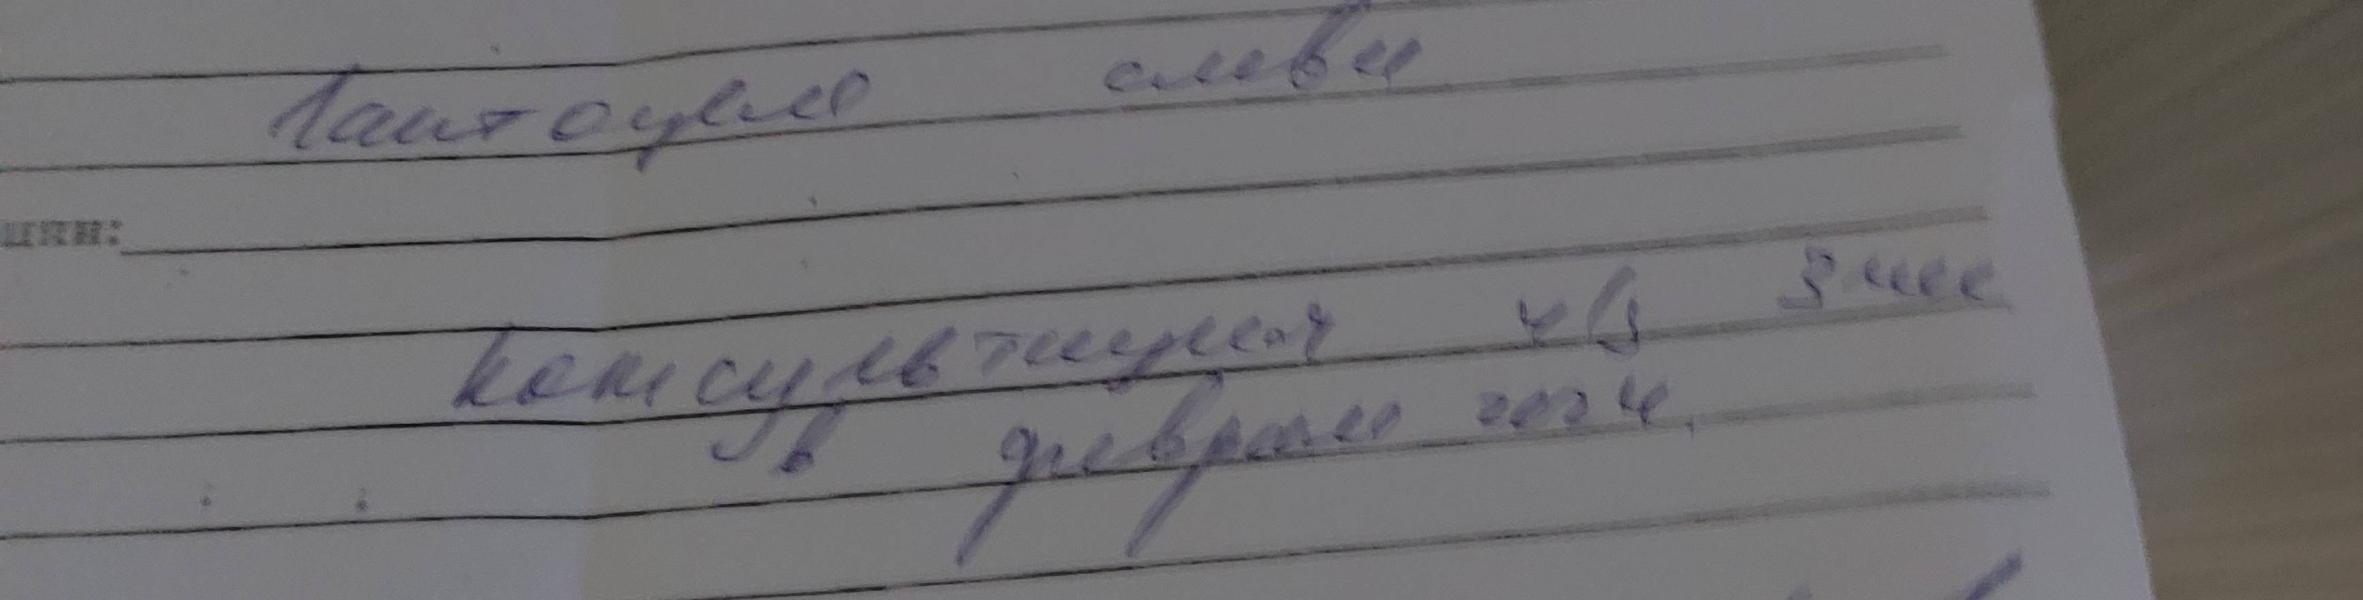 Лактоцеле слева
ции:
консультация ч/з 3 мес
в феврале 2024.